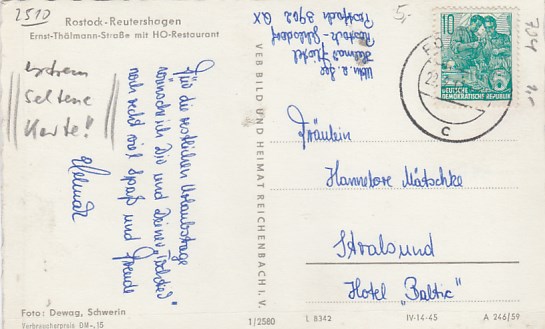 2510
Rostock-Reutershagen
Ernst-Thälmann-Straße mit HO-Restaurant
extrem
seltene
Karte!
Für die restlichen Urlaubstage
wünsche ich Dir und Deiner
noch recht viel Spaß und Freude
Helmar
Foto: Dewag, Schwerin
Verbraucherpreis DM -,15
VEB BILD UND HEIMAT REICHENBACH I. V.
1/2580
Rostock-
Postfach 3962
5,-
10
DEUTSCHE
DEMOKRATISCHE REPUBLIK
C
Fräulein
Hannelore Mätschke
Stralsund
Hotel „Baltic"
L 8342
IV-14-45
A 246/59